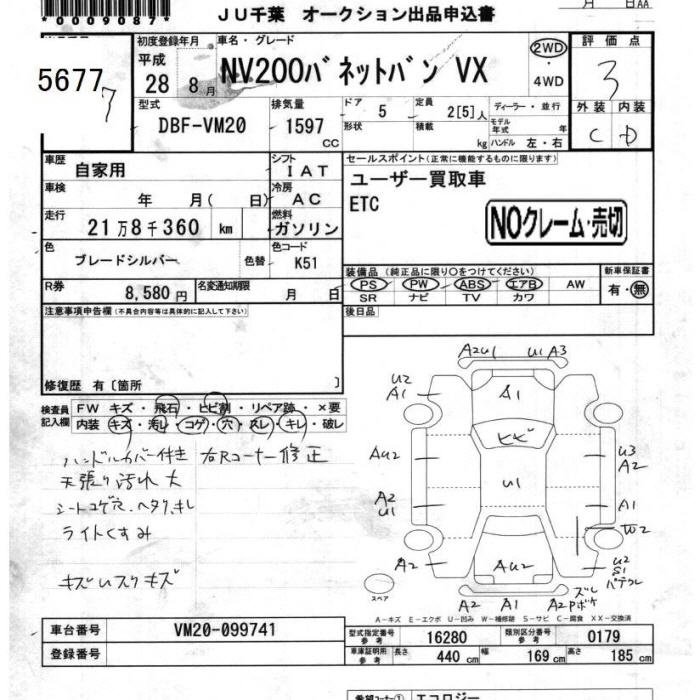 *0009087*
JU千葉 オークション出品申込書
月 日AA
5677
7
初度登録年月
平成
28年 8月
車名・グレード
NV200バネットバン VX
2WD
4WD
評価点
3
外装 内装
C D
型式
DBF-VM20
排気量
1597
CC
ドア
5
形状
定員
2[5]人
積載
kg
ディーラー・並行
モデル年式 年
ハンドル 左・右
車歴
自家用
シフト
IAT
車検
年 月( 日)
冷房
AC
走行
21万8千360 km
燃料
ガソリン
色
ブレードシルバー
色替
色コード
K51
R券
8,580円
名変通知期限
月 日
セールスポイント(正常に機能するものに限ります)
ユーザー買取車
ETC
NOクレーム・売切
装備品(純正品に限り○をつけてください)
PS PW ABS エアB AW
SR ナビ TV カワ
新車保証書
有・無
後日品
注意事項申告欄(不具合内容等は具体的に記入して下さい)
修復歴 有〔箇所 〕
検査員記入欄
FW キズ・飛石・ヒビ割・リペア跡・×要
内装 キズ・汚レ・コゲ・穴・スレ・キレ・破レ
ハンドルカバー付き 右Rコーナー修正
天張り汚れ大
シートコゲ穴、ヘタリ、キレ
ライトくすみ
キズUスリキズ
A2U1 U1 A3
U2
A1
A1
U2
A1
ヒビ
AU2
U1
U3
A2
A2
U1
A1
W2
A2
AU2
U2
S1
パテクレ
A2 A1 A2
ズレ
Pボケ
スペア
A-キズ E-エクボ U-凹み W-補修跡 S-サビ C-腐食 XX-交換済
車台番号
VM20-099741
登録番号
型式指定番号 参考
16280
類別区分番号 参考
0179
車庫証明用 参考
長さ 440cm
幅 169cm
高さ 185cm
希望コーナー① エコロジー